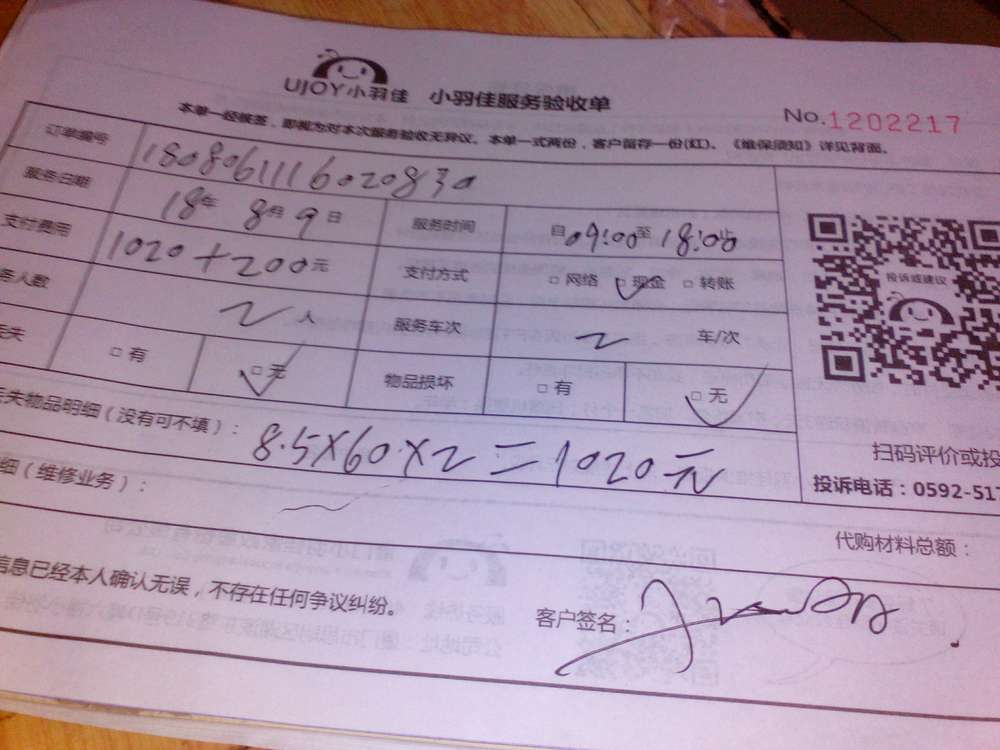 UJOY小羽佳 小羽佳服务验收单
No.1202217
本单一经核签，即视为对本次服务验收无异议。本单一式两份，客户留存一份(红)。《维保须知》详见背面。
订单编号 1808061116020830
服务日期 18年 8月 9日 服务时间 自09:00至18:00止
支付费用 1020+200元 支付方式 □网络 □现金 □转账
务人数 2人 服务车次 2 车/次
丢失 □有 □无 物品损坏 □有 □无
丢失物品明细（没有可不填）： 8.5×60×2=1020元
细（维修业务）：
投诉或建议
扫码评价或投
投诉电话：0592-517
代购材料总额：
信息已经本人确认无误，不存在任何争议纠纷。
客户签名：